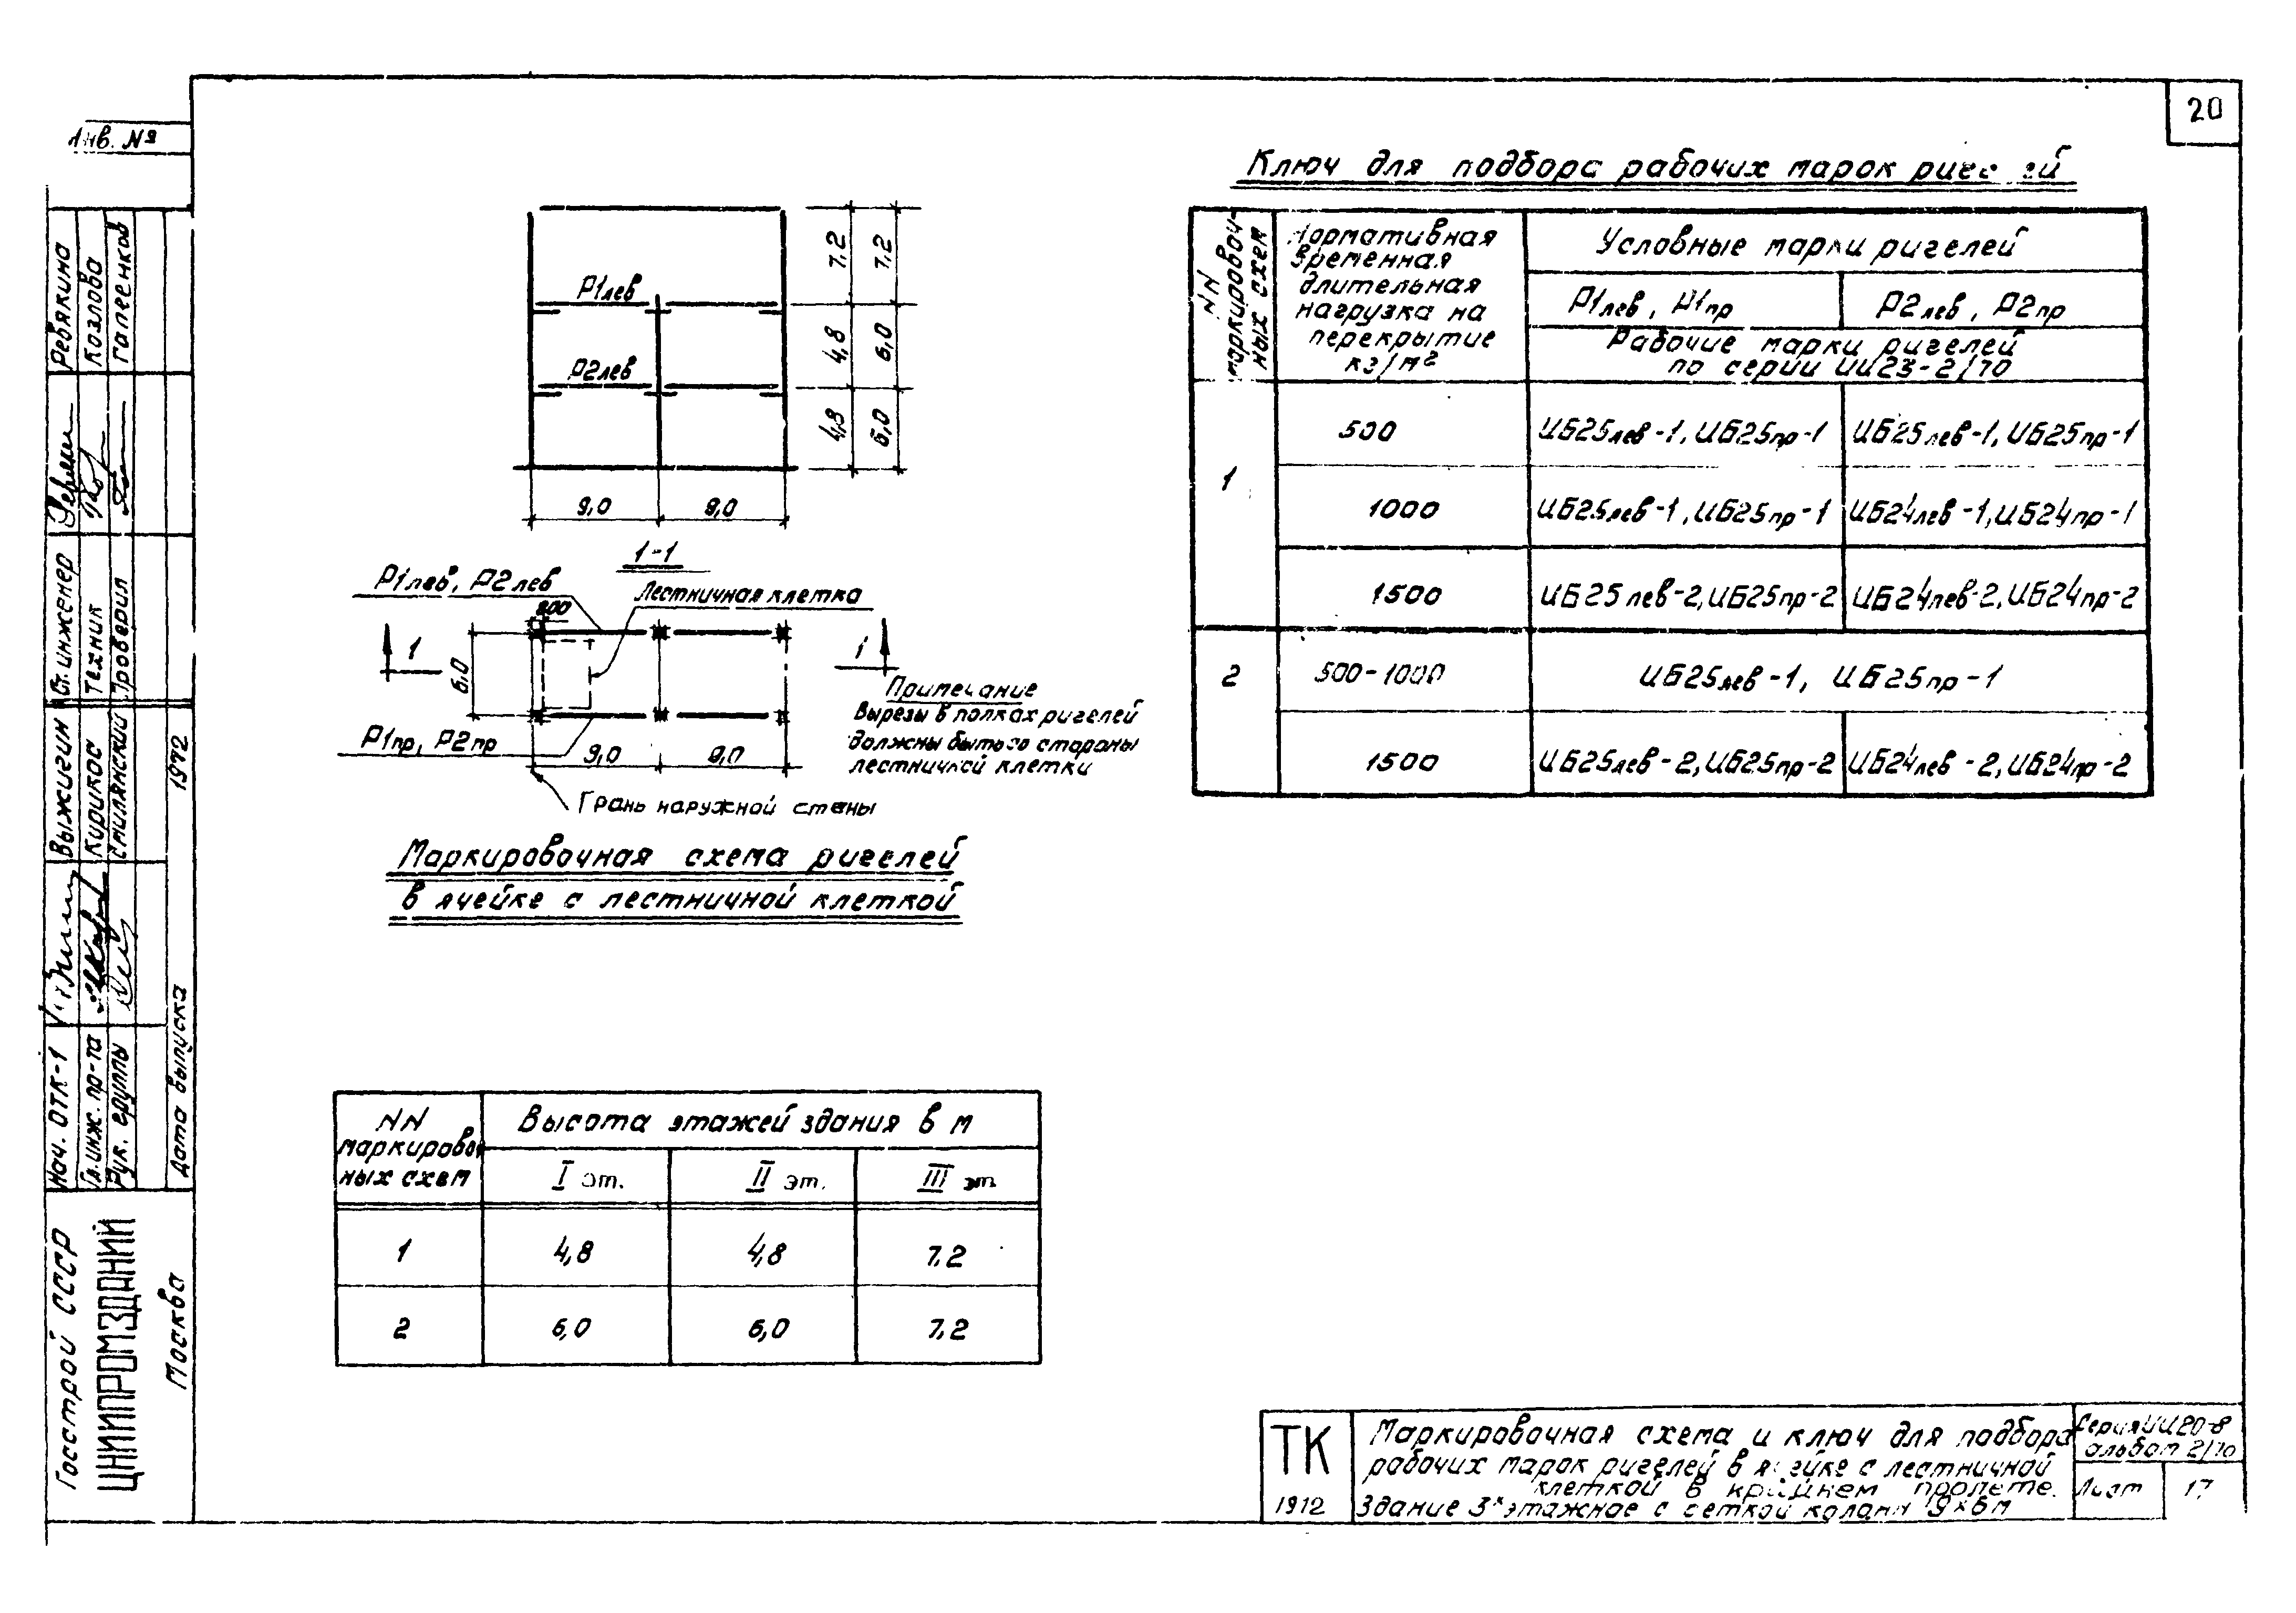 20
Инв. №
Ключ для подбора рабочих марок
NN маркировоч-
ных схем
Нормативная
временная
длительная
нагрузка на
перекрытие
кг/м²
Условные марки ригелей
Р1лев, Р1пр
Р2лев, Р2пр
Рабочие марки ригелей
по серии ИИ23-2/70
1
500
ИБ25лев-1, ИБ25пр-1
ИБ25лев-1, ИБ25пр-1
1000
ИБ25лев-1, ИБ25пр-1
ИБ24лев-1, ИБ24пр-1
1500
ИБ25лев-2, ИБ25пр-2
ИБ24лев-2, ИБ24пр-2
2
500-1000
ИБ25лев-1, ИБ25пр-1
1500
ИБ25лев-2, ИБ25пр-2
ИБ24лев-2, ИБ24пр-2
Р1лев
Р2лев
7,2
7,2
4,8
6,0
4,8
6,0
9,0
9,0
1-1
Р1лев, Р2лев
Лестничная клетка
200
1
1
6,0
Р1пр, Р2пр
9,0
9,0
Грань наружной стены
Примечание
Вырезы в полках ригелей
должны быть со стороны
лестничной клетки
Маркировочная схема ригелей
в ячейке с лестничной клеткой
NN
маркировоч
ных схем
Высота этажей здания в м
I эт.
II эт.
III эт.
1
4,8
4,8
7,2
2
6,0
6,0
7,2
Ревякина
Козлова
Галеенков
Ст. инженер
Техник
Проверил
Выжигин
Кирикос
Смилянский
1972
Нач. ОТК-1
Гл. инж. пр-та
Рук. группы
Дата выпуска
Госстрой СССР
ЦНИИПРОМЗДАНИЙ
Москва
ТК
1972
Маркировочная схема и ключ для подбора
рабочих марок ригелей в ячейке с лестничной
клеткой в крайнем пролете.
Здание 3х этажное с сеткой колонн 9х6м
Серия ИИ20-8
альбом 2/70
Лист
17